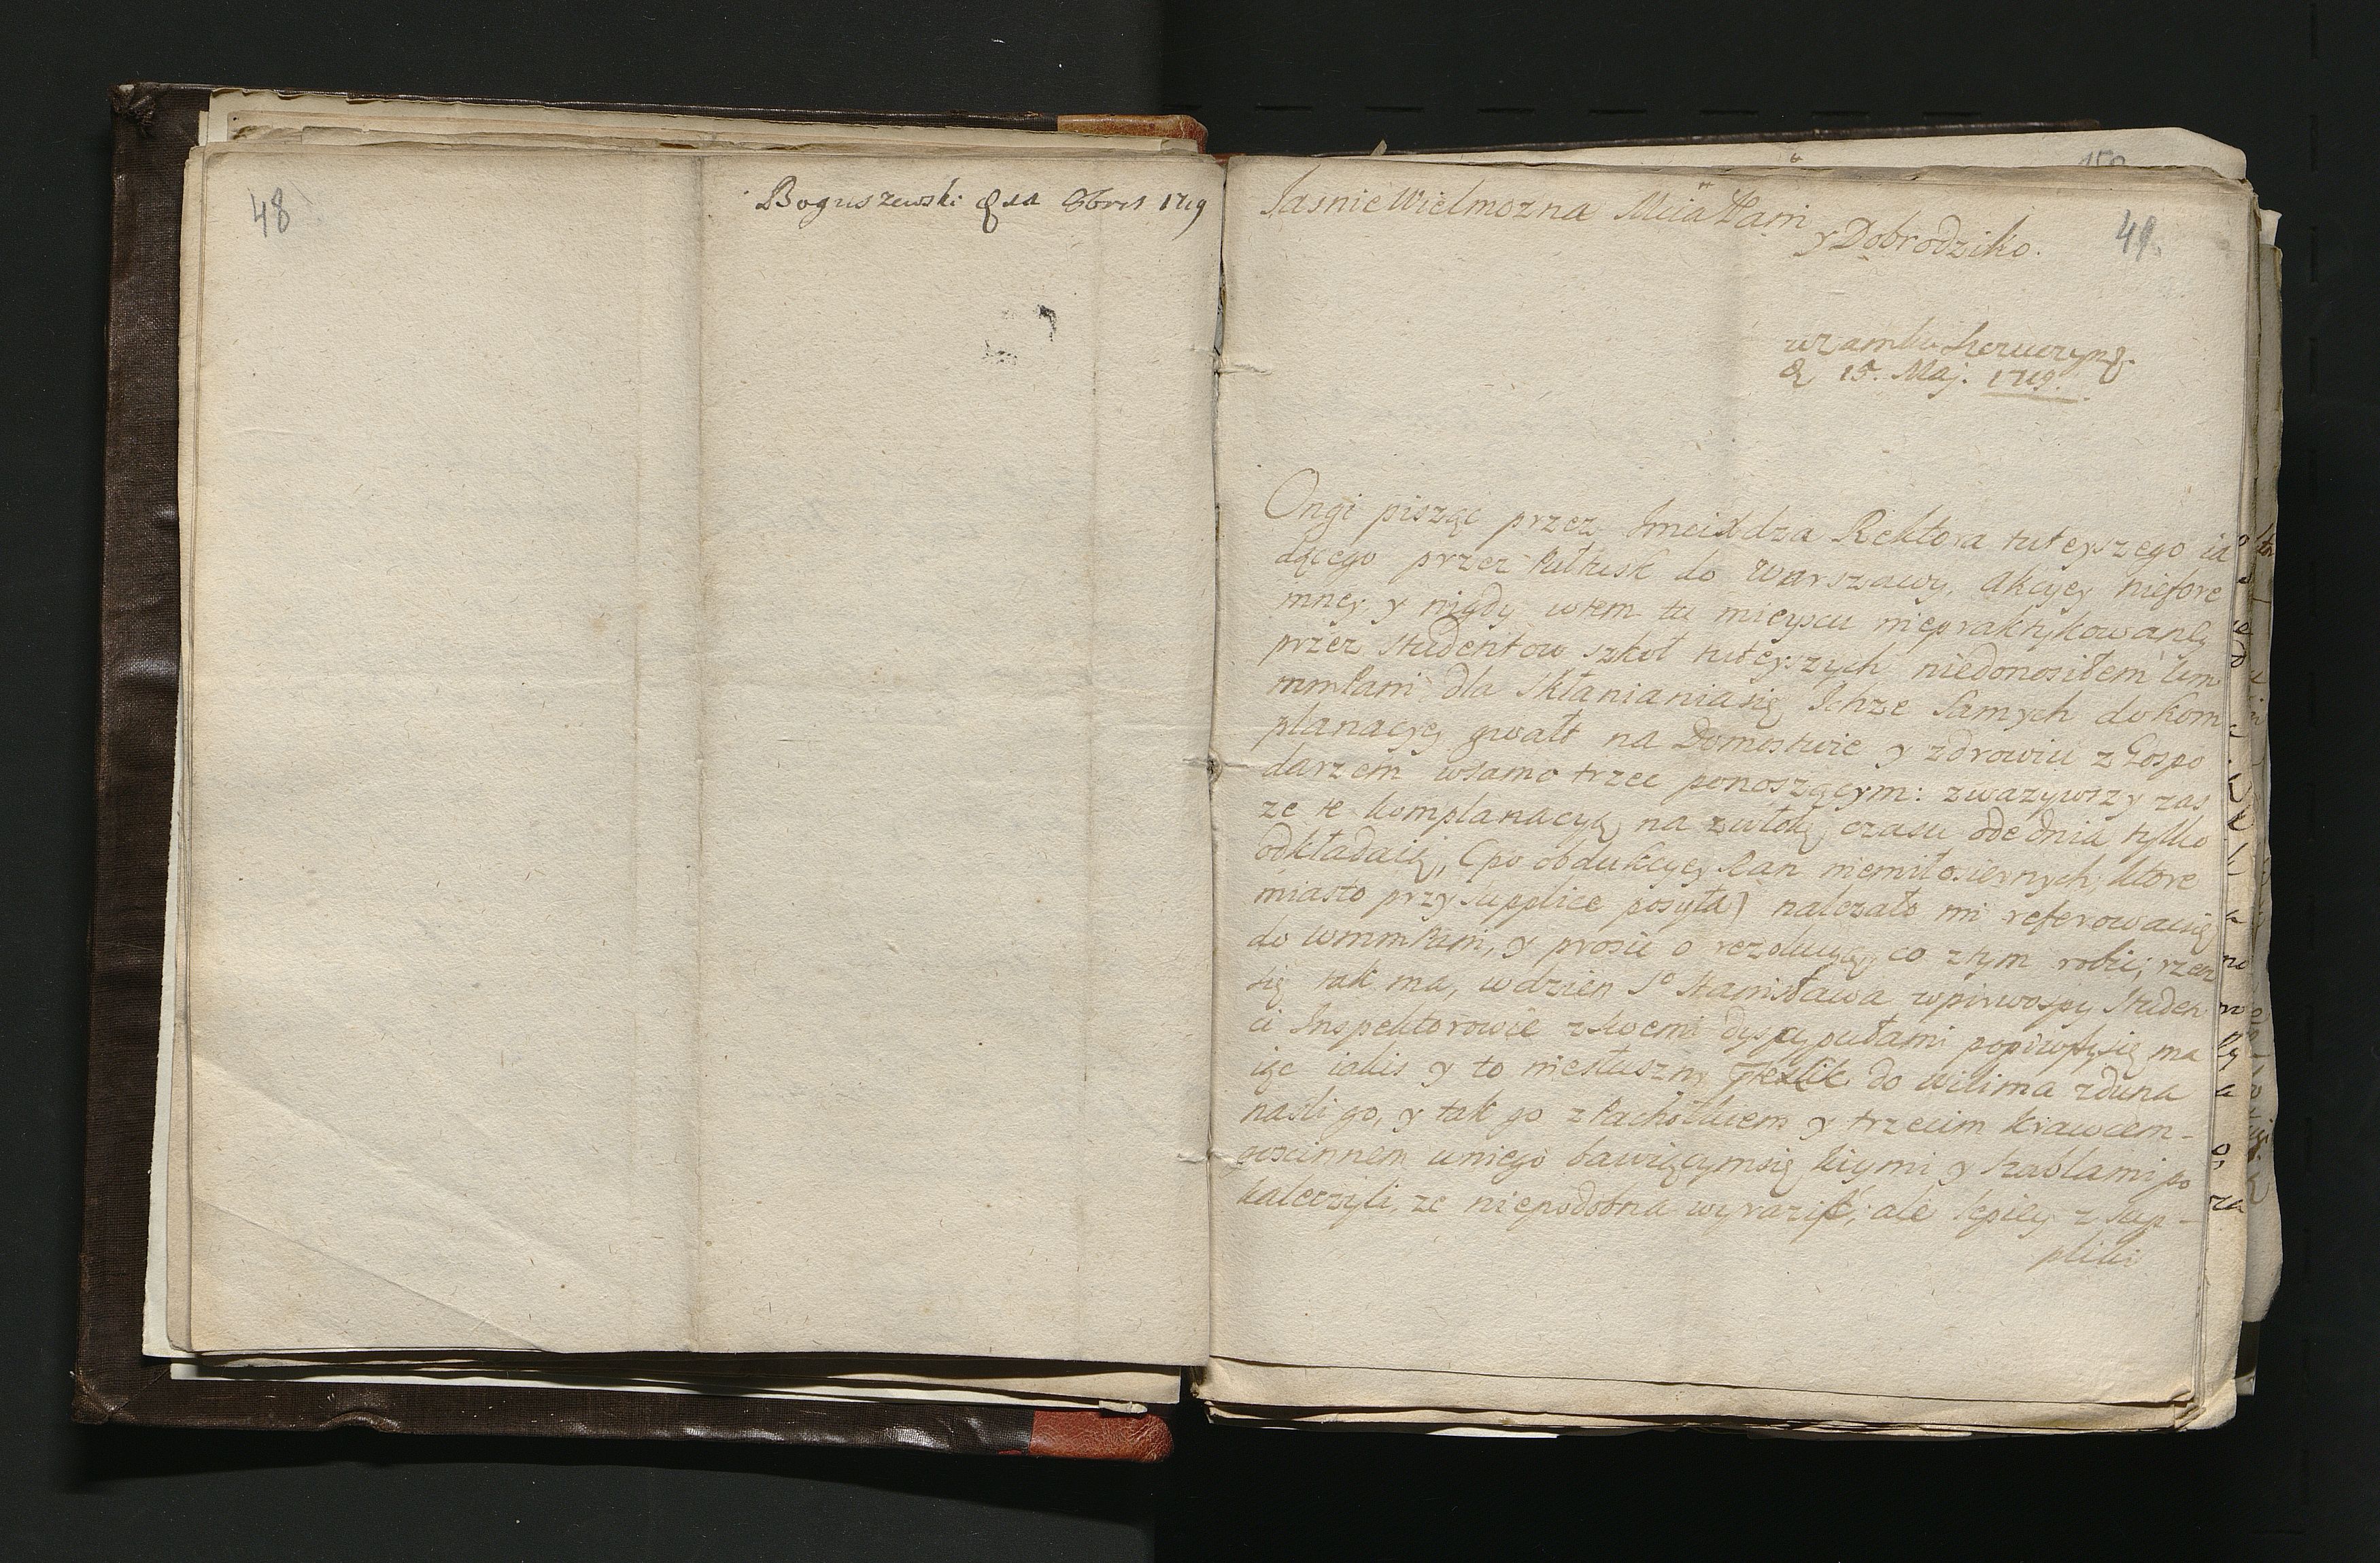 48
Boguszewski 8bris 1719
49.
Jasnie Wielmozna Mcia Pani
y Dobrodziko.
15. Maj. 1719.
Ongi pisząc przez Jmci Xdza Rektora tuteyszego ia
dącego przez Pułtusk do Warszawy, akcyey niefore
mney, y nigdy wtem tu mieyscu niepraktykowaney
przez studentow szkoł tuteyszych niedonosiłem
dla skłaniania się Ichze samych do kom
planacyey gwałt na Domostwie y zdrowiu z Gospo
darzem wsamo trzec ponoszącym: zwazywszy zas
ze te komplanacyą na zwłokę czasu odednia tylko
odkładaią, (po obdukcyey Ran niemiłosiernych, ktore
miasto przy supplice posyła) nalezało mi referowacsię
do wmmPani, y prosic o rezolucyą, co z tym robic; rzecz
się tak ma, wdzien So Stanisława studen
ci Inspektorowie zswemi dyscypułami popiwszysię ma
iąc iakis y to niesłuszny do Wilima zduna
naśli go, y tak go z Pachołkiem y trzecim krawcem-
goscinnem uniego bawiącymsię kiymi y szablami po
kaleczyli, ze niepodobna wyrazic, ale lepiey z sup-
pliki